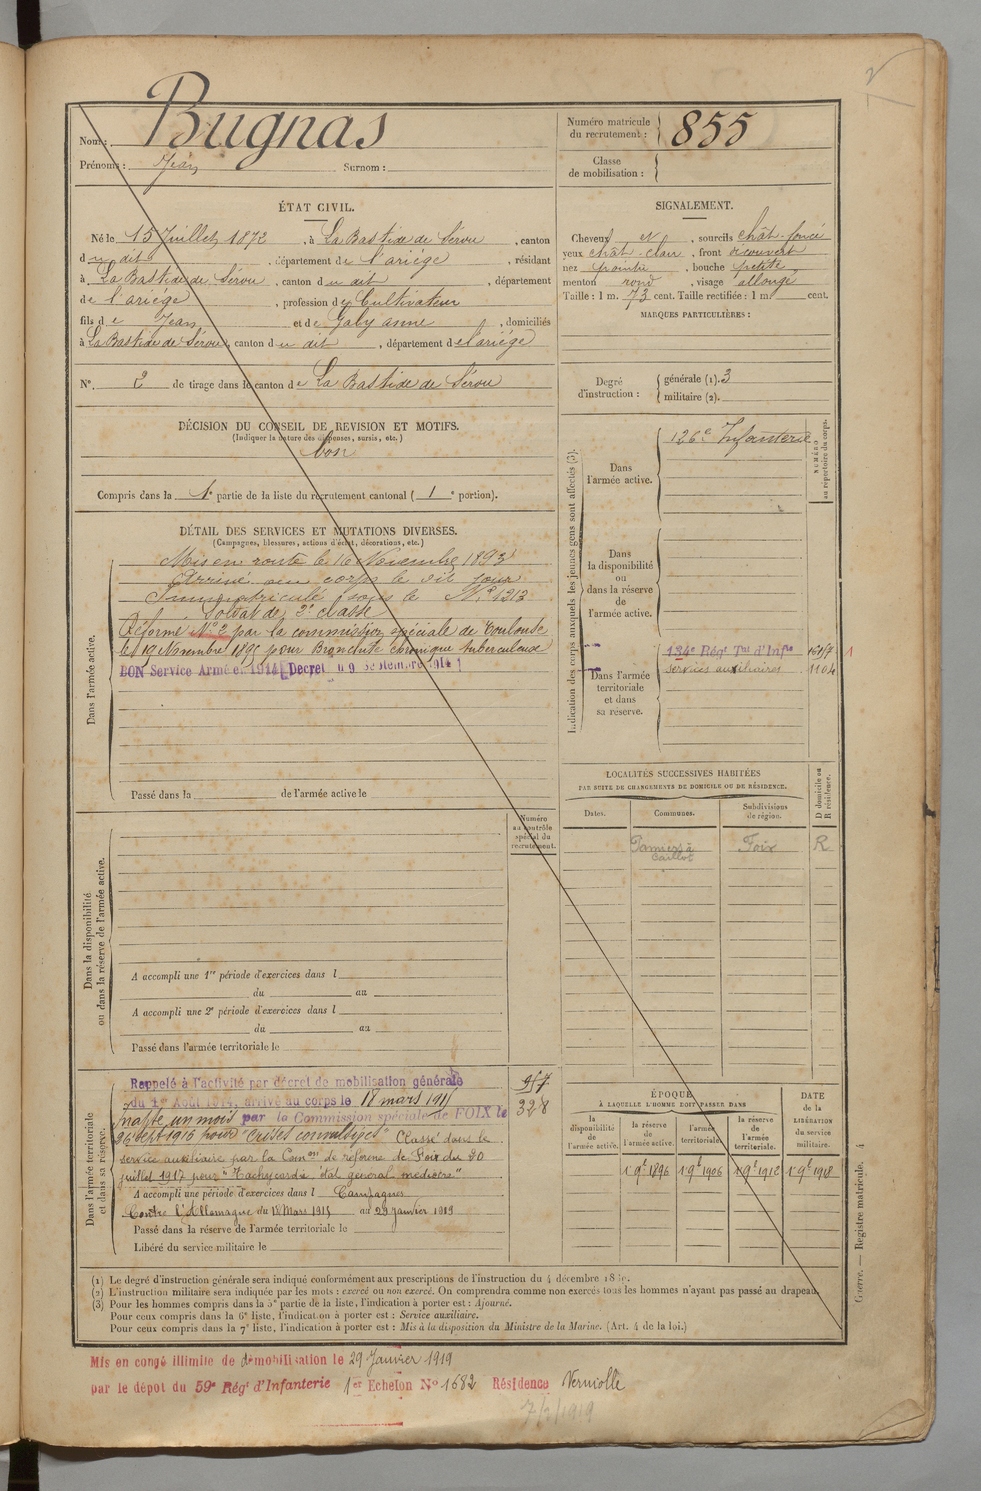 Nom : Bugnas
Prénoms : Jean Surnom :
Numéro matricule du recrutement : 855
Classe de mobilisation :
ÉTAT CIVIL.
Né le 15 Juillet 1872, à La Bastide de Sérou, canton
du dit, département de l'ariége, résidant
à La Bastide de Sérou, canton du dit, département
de l'ariége, profession de Cultivateur
fils de Jean et de Gaby anne, domiciliés
à La Bastide de Sérou, canton du dit, département de l'ariége
N° 2 de tirage dans le canton de La Bastide de Sérou
DÉCISION DU CONSEIL DE REVISION ET MOTIFS.
(Indiquer la nature des dispenses, sursis, etc.)
bon
Compris dans la 1e partie de la liste du recrutement cantonal (1e portion).
SIGNALEMENT.
Cheveux et, sourcils chât-foncé
yeux chât-clair, front découvert
nez pointu, bouche petite
menton rond, visage allongé
Taille : 1 m. 73 cent. Taille rectifiée : 1 m. cent.
MARQUES PARTICULIÈRES :
Degré d'instruction : générale (1). 3
militaire (2).
DÉTAIL DES SERVICES ET MUTATIONS DIVERSES.
(Campagnes, blessures, actions d'éclat, décorations, etc.)
Dans l'armée active.
Mis en route le 16 Novembre 1893
Arrivé au corps le dit jour
Immatriculé sous le N° 1213
Soldat de 2e classe
Réformé N° 2 par la commission spéciale de Toulouse
le 19 Novembre 1895 pour Bronchite chronique tuberculeuse
BON Service Armé en 1914 Decret du 9 Septembre 1914
Passé dans la de l'armée active le
Indication des corps auxquels les jeunes gens sont affectés (3).
Dans l'armée active.
126e Infanterie
NUMÉRO au répertoire du corps.
Dans la disponibilité ou dans la réserve de l'armée active.
Dans l'armée territoriale et dans sa réserve.
134e Régt Tal d'Infie
services auxiliaires 1104
1
LOCALITÉS SUCCESSIVES HABITÉES
PAR SUITE DE CHANGEMENTS DE DOMICILE OU DE RÉSIDENCE.
Dates. Communes. Subdivisions de région. D domicile ou R résidence.
Pamiers à Caillol Foix R
Numéro au contrôle spécial du recrutement.
Dans la disponibilité ou dans la réserve de l'armée active.
A accompli une 1re période d'exercices dans l
du au
A accompli une 2e période d'exercices dans l
du au
Passé dans l'armée territoriale le
Dans l'armée territoriale et dans sa réserve.
Rappelé à l'activité par décret de mobilisation générale
du 1er Août 1914, arrivé au corps le 18 mars 1915
328
Inapte un mois par la Commission spéciale de FOIX le
26 sept 1916 pour "Crises convulsives" Classé dans le
service auxiliaire par la Comon de réforme de Foix du 20
juillet 1917 pour "Tachycardie, état général médiocre"
A accompli une période d'exercices dans l Campagnes
Contre l'Allemagne du 18 Mars 1915 au 29 janvier 1919
Passé dans la réserve de l'armée territoriale le
Libéré du service militaire le
ÉPOQUE
A LAQUELLE L'HOMME DOIT PASSER DANS
la disponibilité de l'armée active. la réserve de l'armée active. l'armée territoriale. la réserve de l'armée territoriale. DATE de la LIBÉRATION du service militaire.
1 9e 1896 1 9e 1906 1 9e 1912 1 9e 1918
(1) Le degré d'instruction générale sera indiqué conformément aux prescriptions de l'instruction du 4 décembre
(2) L'instruction militaire sera indiquée par les mots : exercé ou non exercé. On comprendra comme non exercés tous les hommes n'ayant pas passé au drapeau.
(3) Pour les hommes compris dans la 5e partie de la liste, l'indication à porter est : Ajourné.
Pour ceux compris dans la 6e liste, l'indication à porter est : Service auxiliaire.
Pour ceux compris dans la 7e liste, l'indication à porter est : Mis à la disposition du Ministre de la Marine. (Art. 4 de la loi.)
Guerre. — Registre matricule. 4
Mis en congé illimité de démobilisation le 29 Janvier 1919
par le dépot du 59e Régt d'Infanterie 1er Echelon N° 1682 Résidence Verniolle
7/2/1919